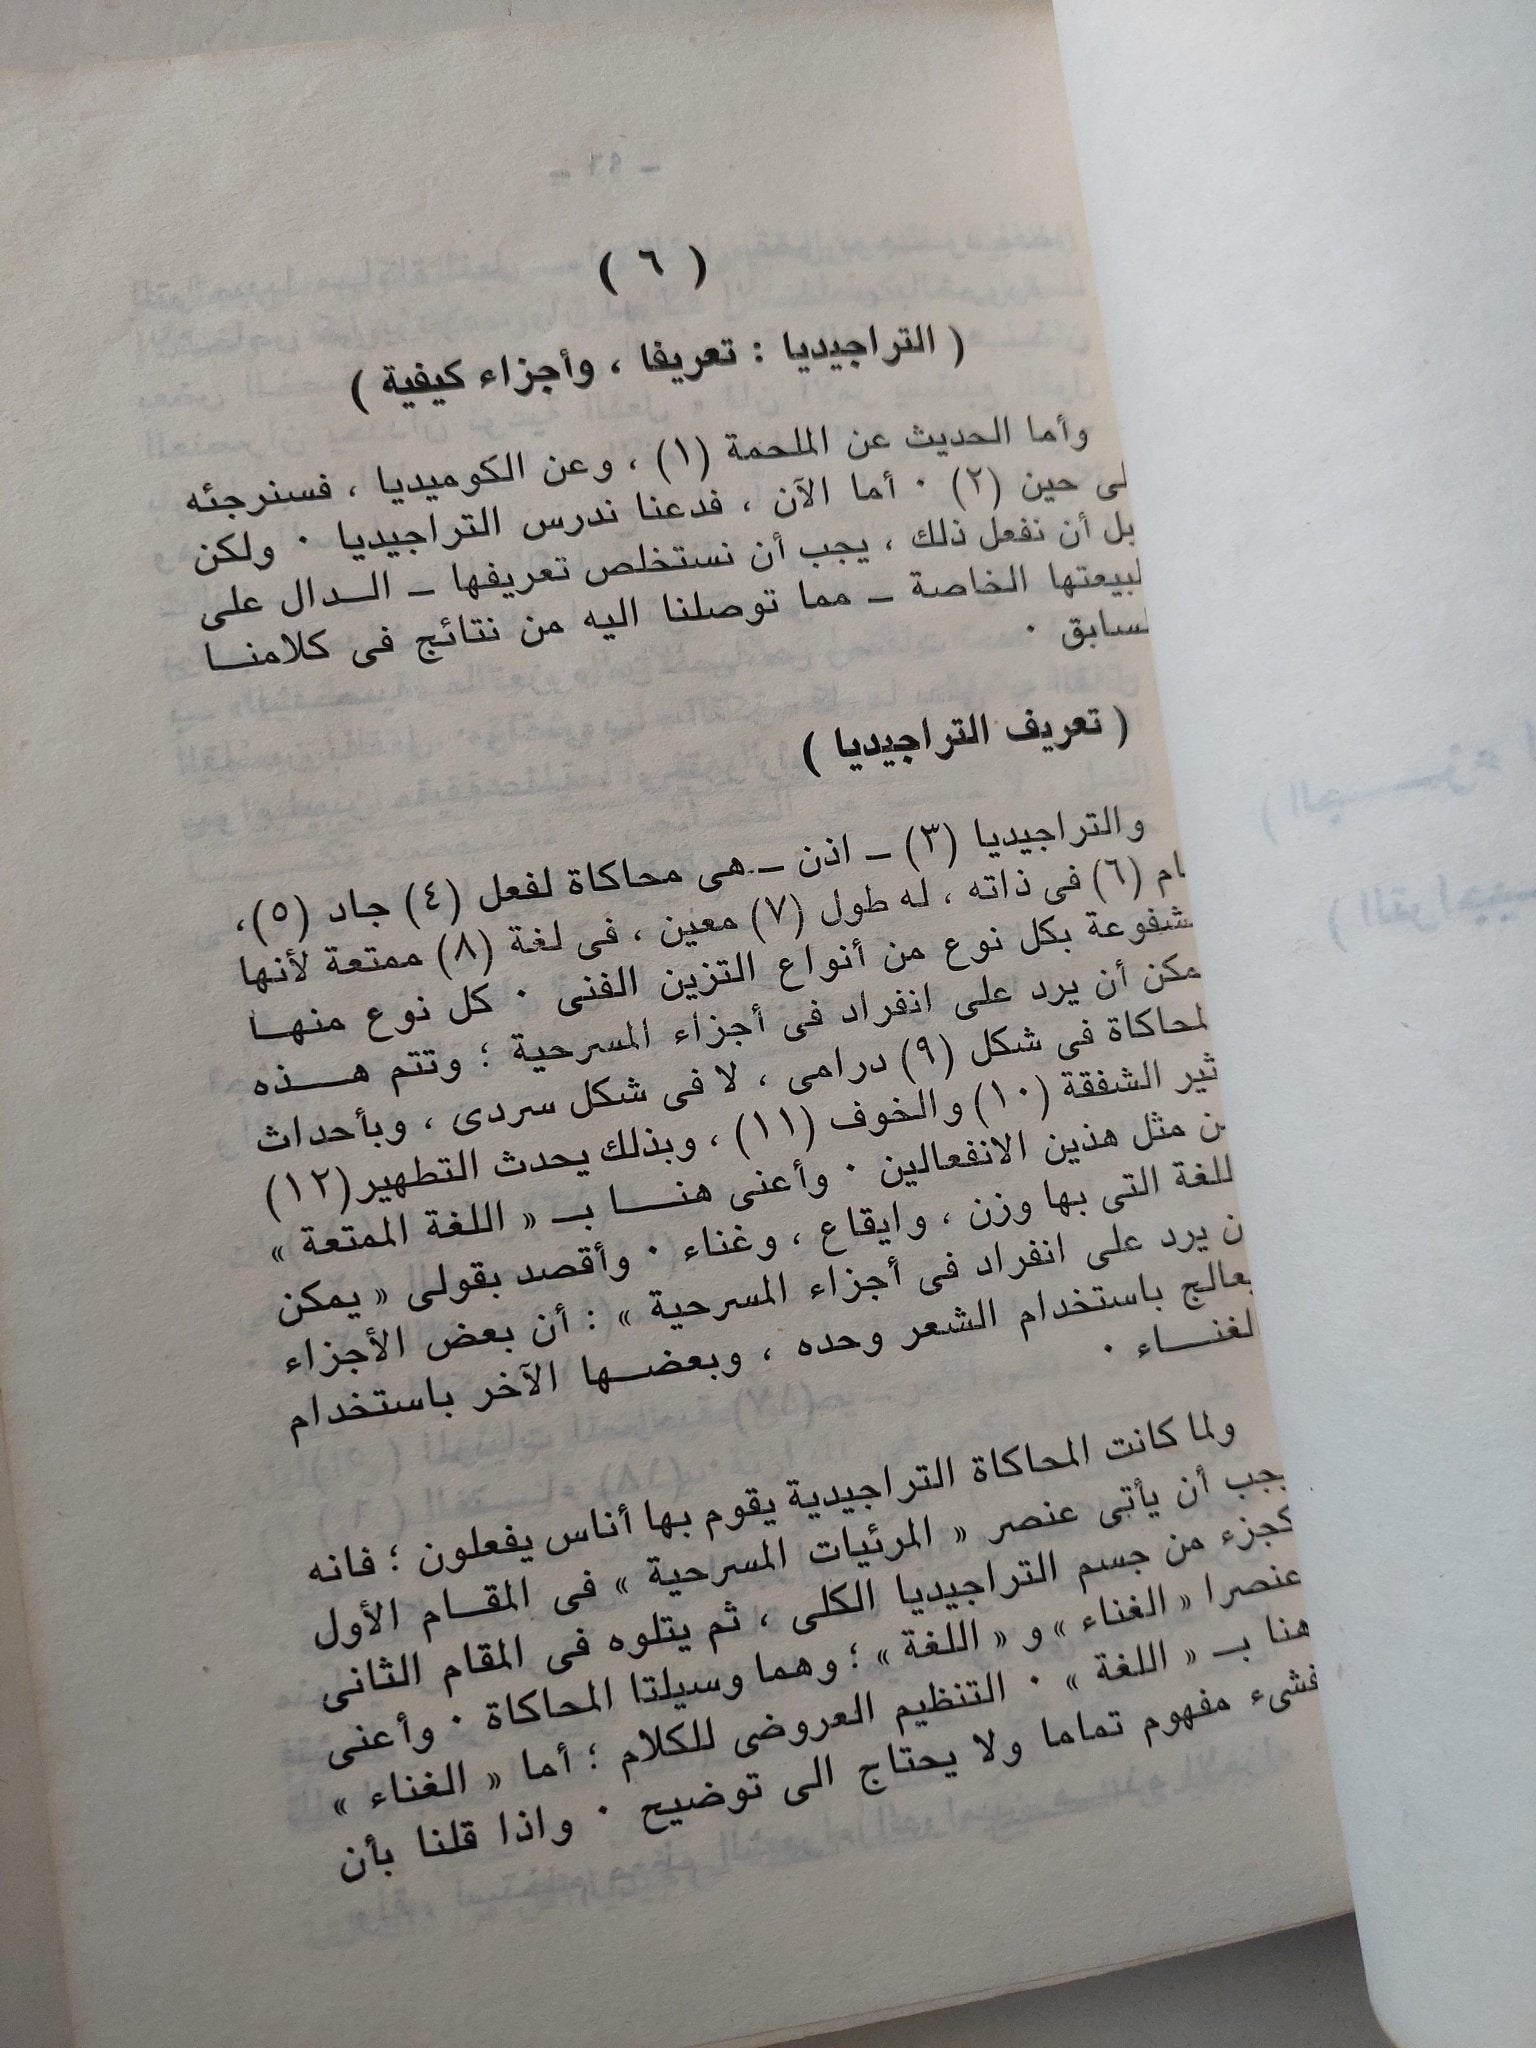 ( ٦ )
( التراجيديا : تعريفا ، وأجزاء كيفية )
وأما الحديث عن الملحمة (١) ، وعن الكوميديا ، فسنرجئه
لى حين (٢) ٠ أما الآن ، فدعنا ندرس التراجيديا ٠ ولكن
بل أن نفعل ذلك ، يجب أن نستخلص تعريفها ــ الدال على
بيعتها الخاصة ــ مما توصلنا اليه من نتائج فى كلامنا
لسابق ٠
( تعريف التراجيديا )
والتراجيديا (٣) ــ اذن ــ هى محاكاة لفعل (٤) جاد (٥) ،
ام (٦) فى ذاته ، له طول (٧) معين ، فى لغة (٨) ممتعة لأنها
شفوعة بكل نوع من أنواع التزين الفنى ٠ كل نوع منها
مكن أن يرد على انفراد فى أجزاء المسرحية ؛ وتتم هذه
لمحاكاة فى شكل (٩) درامى ، لا فى شكل سردى ، وبأحداث
ثير الشفقة (١٠) والخوف (١١) ، وبذلك يحدث التطهير (١٢)
ن مثل هذين الانفعالين ٠ وأعنى هنا بـ « اللغة الممتعة »
للغة التى بها وزن ، وايقاع ، وغناء ٠ وأقصد بقولى « يمكن
ن يرد على انفراد فى أجزاء المسرحية » : أن بعض الأجزاء
عالج باستخدام الشعر وحده ، وبعضها الآخر باستخدام
لغناء ٠
ولما كانت المحاكاة التراجيدية يقوم بها أناس يفعلون ؛ فانه
جب أن يأتى عنصر « المرئيات المسرحية » فى المقام الأول
كجزء من جسم التراجيديا الكلى ، ثم يتلوه فى المقام الثانى
عنصرا « الغناء » و « اللغة » ؛ وهما وسيلتا المحاكاة ٠ وأعنى
هنا بـ « اللغة » ٠ التنظيم العروضى للكلام ؛ أما « الغناء »
فشىء مفهوم تماما ولا يحتاج الى توضيح ٠ واذا قلنا بأن